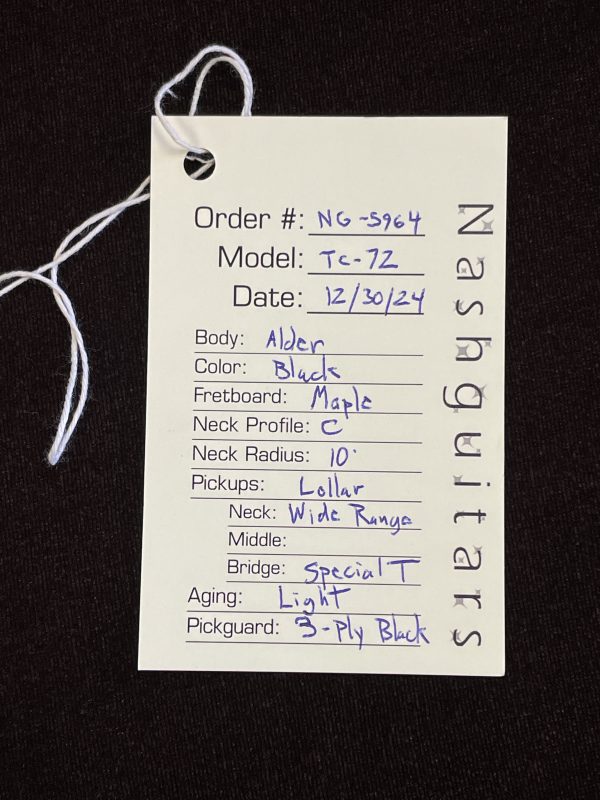 Order #: NG-5964
Model: TC-72
Date: 12/30/24
Body: Alder
Color: Black
Fretboard: Maple
Neck Profile: C
Neck Radius: 10"
Pickups: Lollar
Neck: Wide Range
Middle:
Bridge: Special T
Aging: Light
Pickguard: 3-Ply Black
Nashguitars